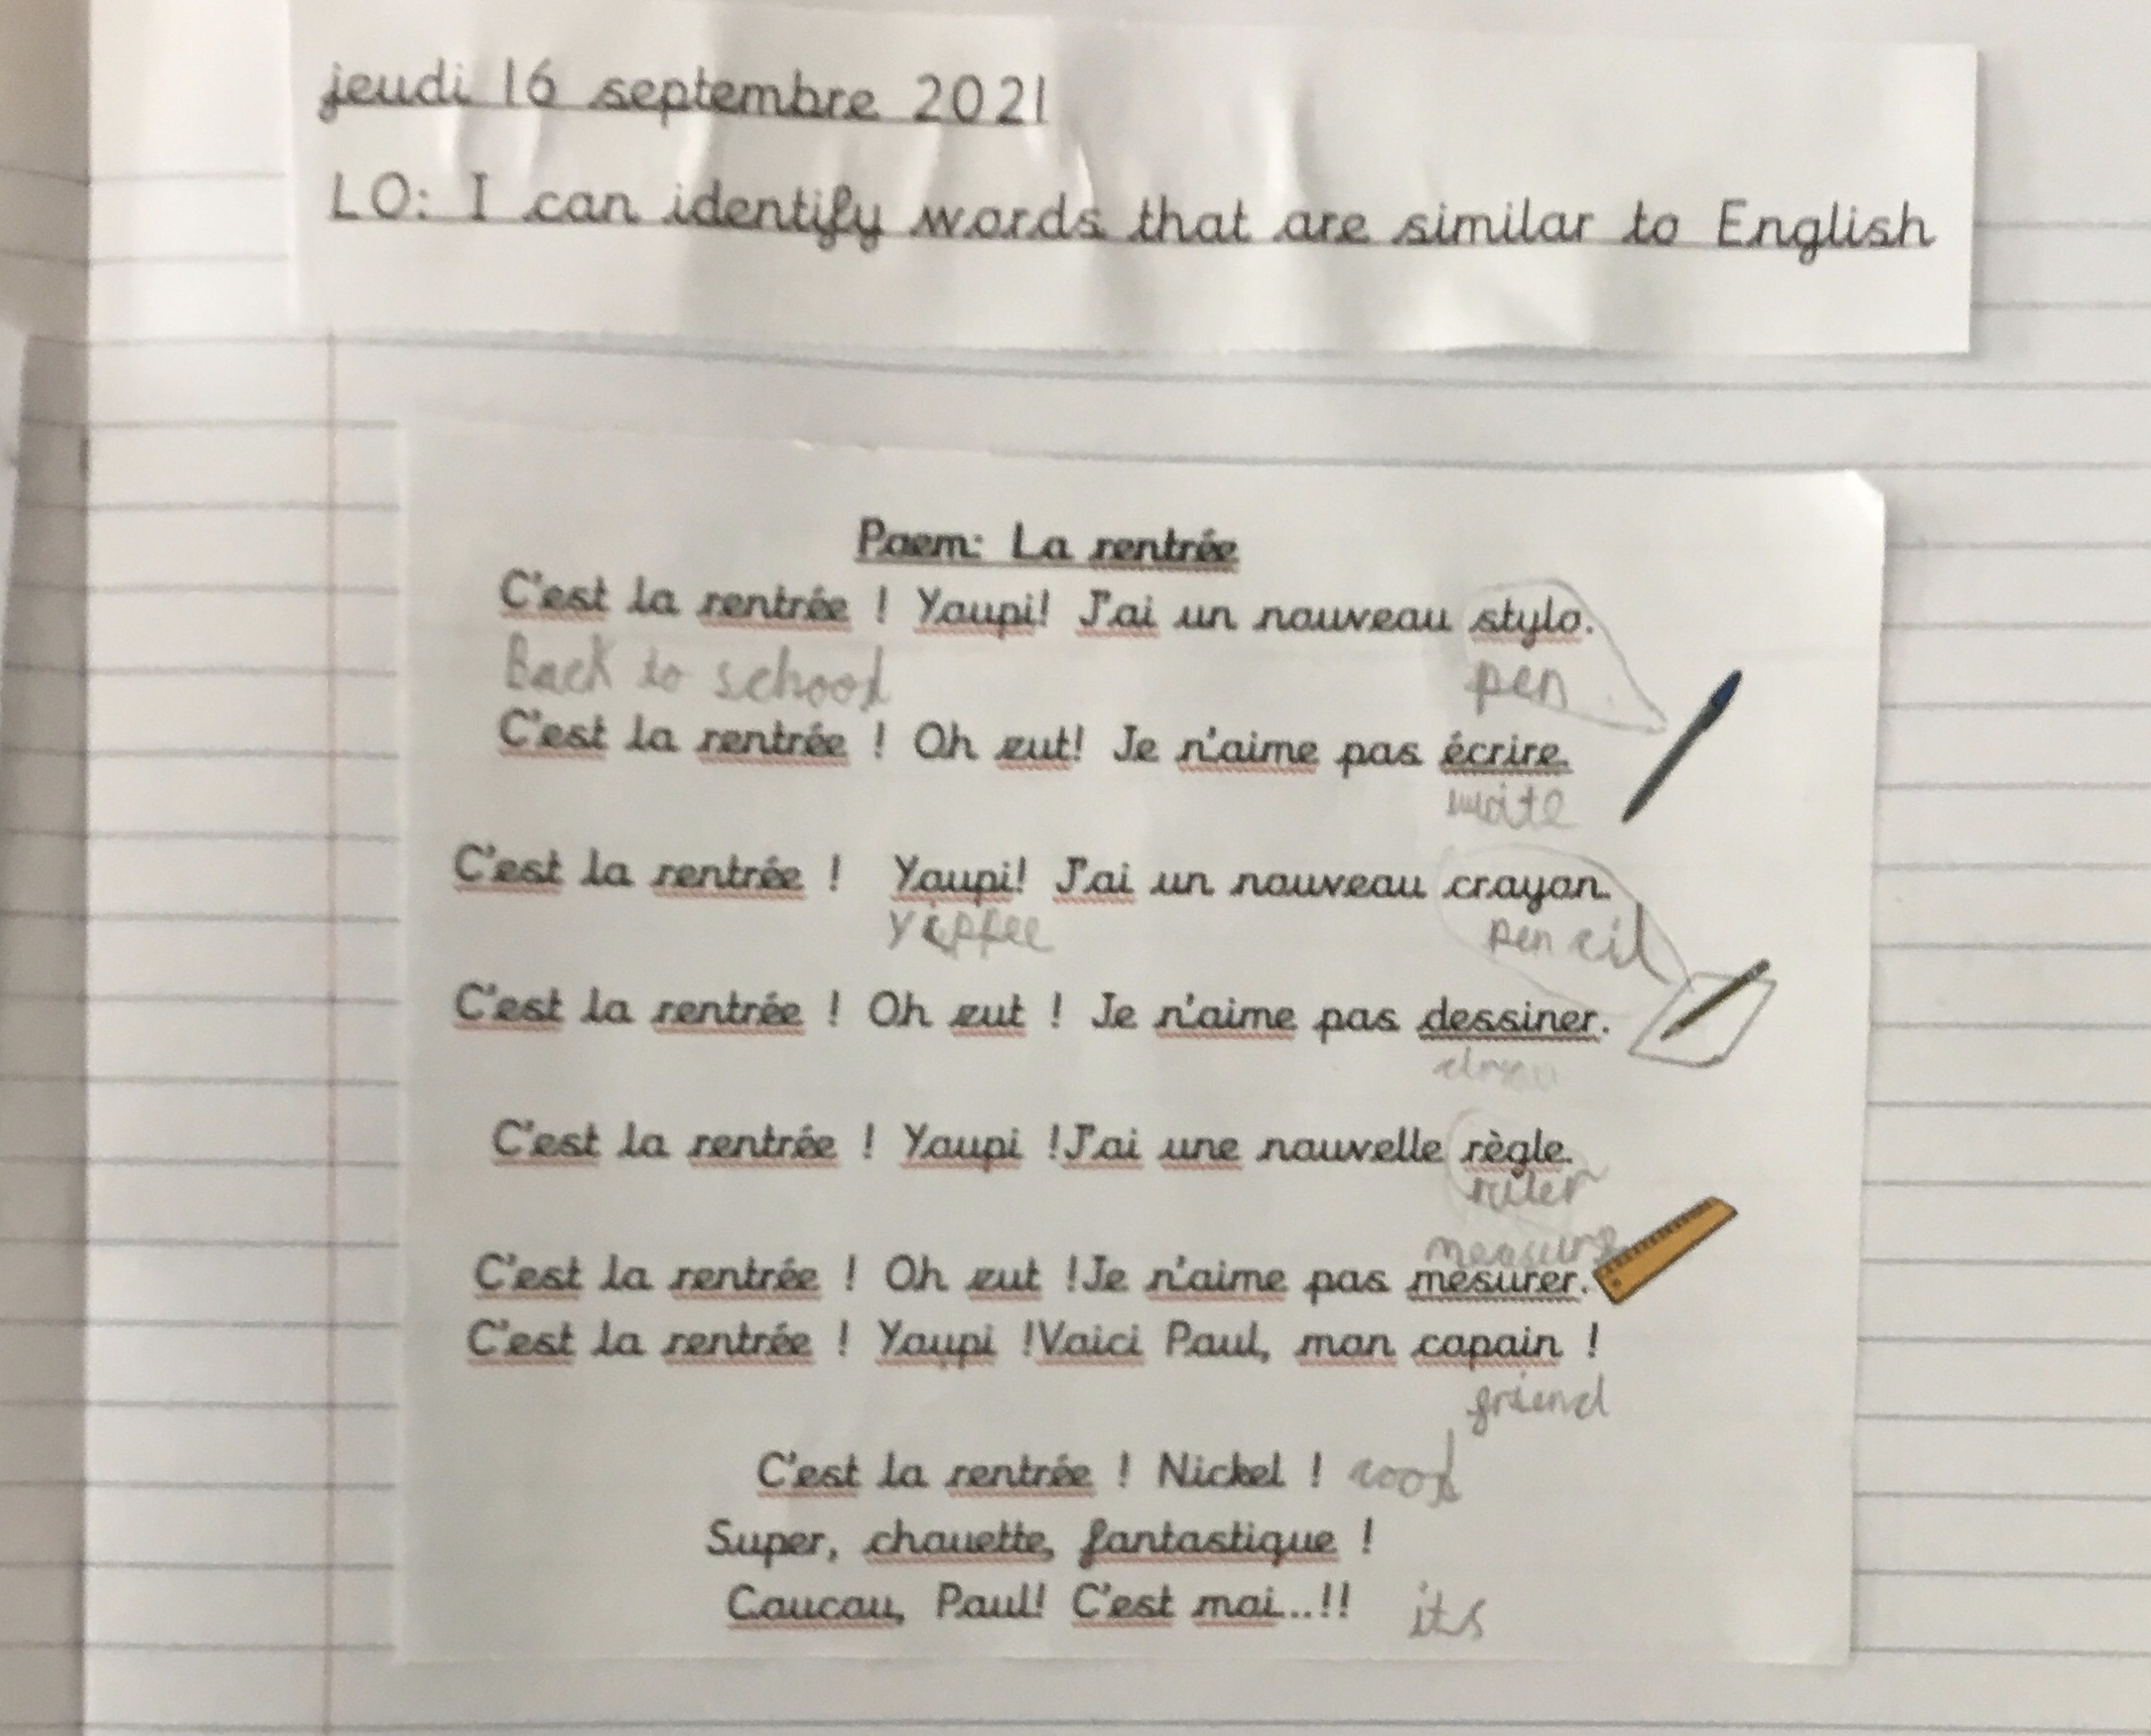 jeudi 16 septembre 2021
LO: I can identify words that are similar to English
Poem: La rentrée
C'est la rentrée ! Youpi! J'ai un nouveau stylo.
Back to school pen
C'est la rentrée ! Oh zut! Je n'aime pas écrire.
write
C'est la rentrée ! Youpi! J'ai un nouveau crayon.
yippee pencil
C'est la rentrée ! Oh zut ! Je n'aime pas dessiner.
draw
C'est la rentrée ! Youpi !J'ai une nouvelle règle.
ruler
measure
C'est la rentrée ! Oh zut !Je n'aime pas mesurer.
C'est la rentrée ! Youpi !Voici Paul, mon copain !
friend
C'est la rentrée ! Nickel ! cool
Super, chouette, fantastique !
Coucou, Paul! C'est moi...!! its